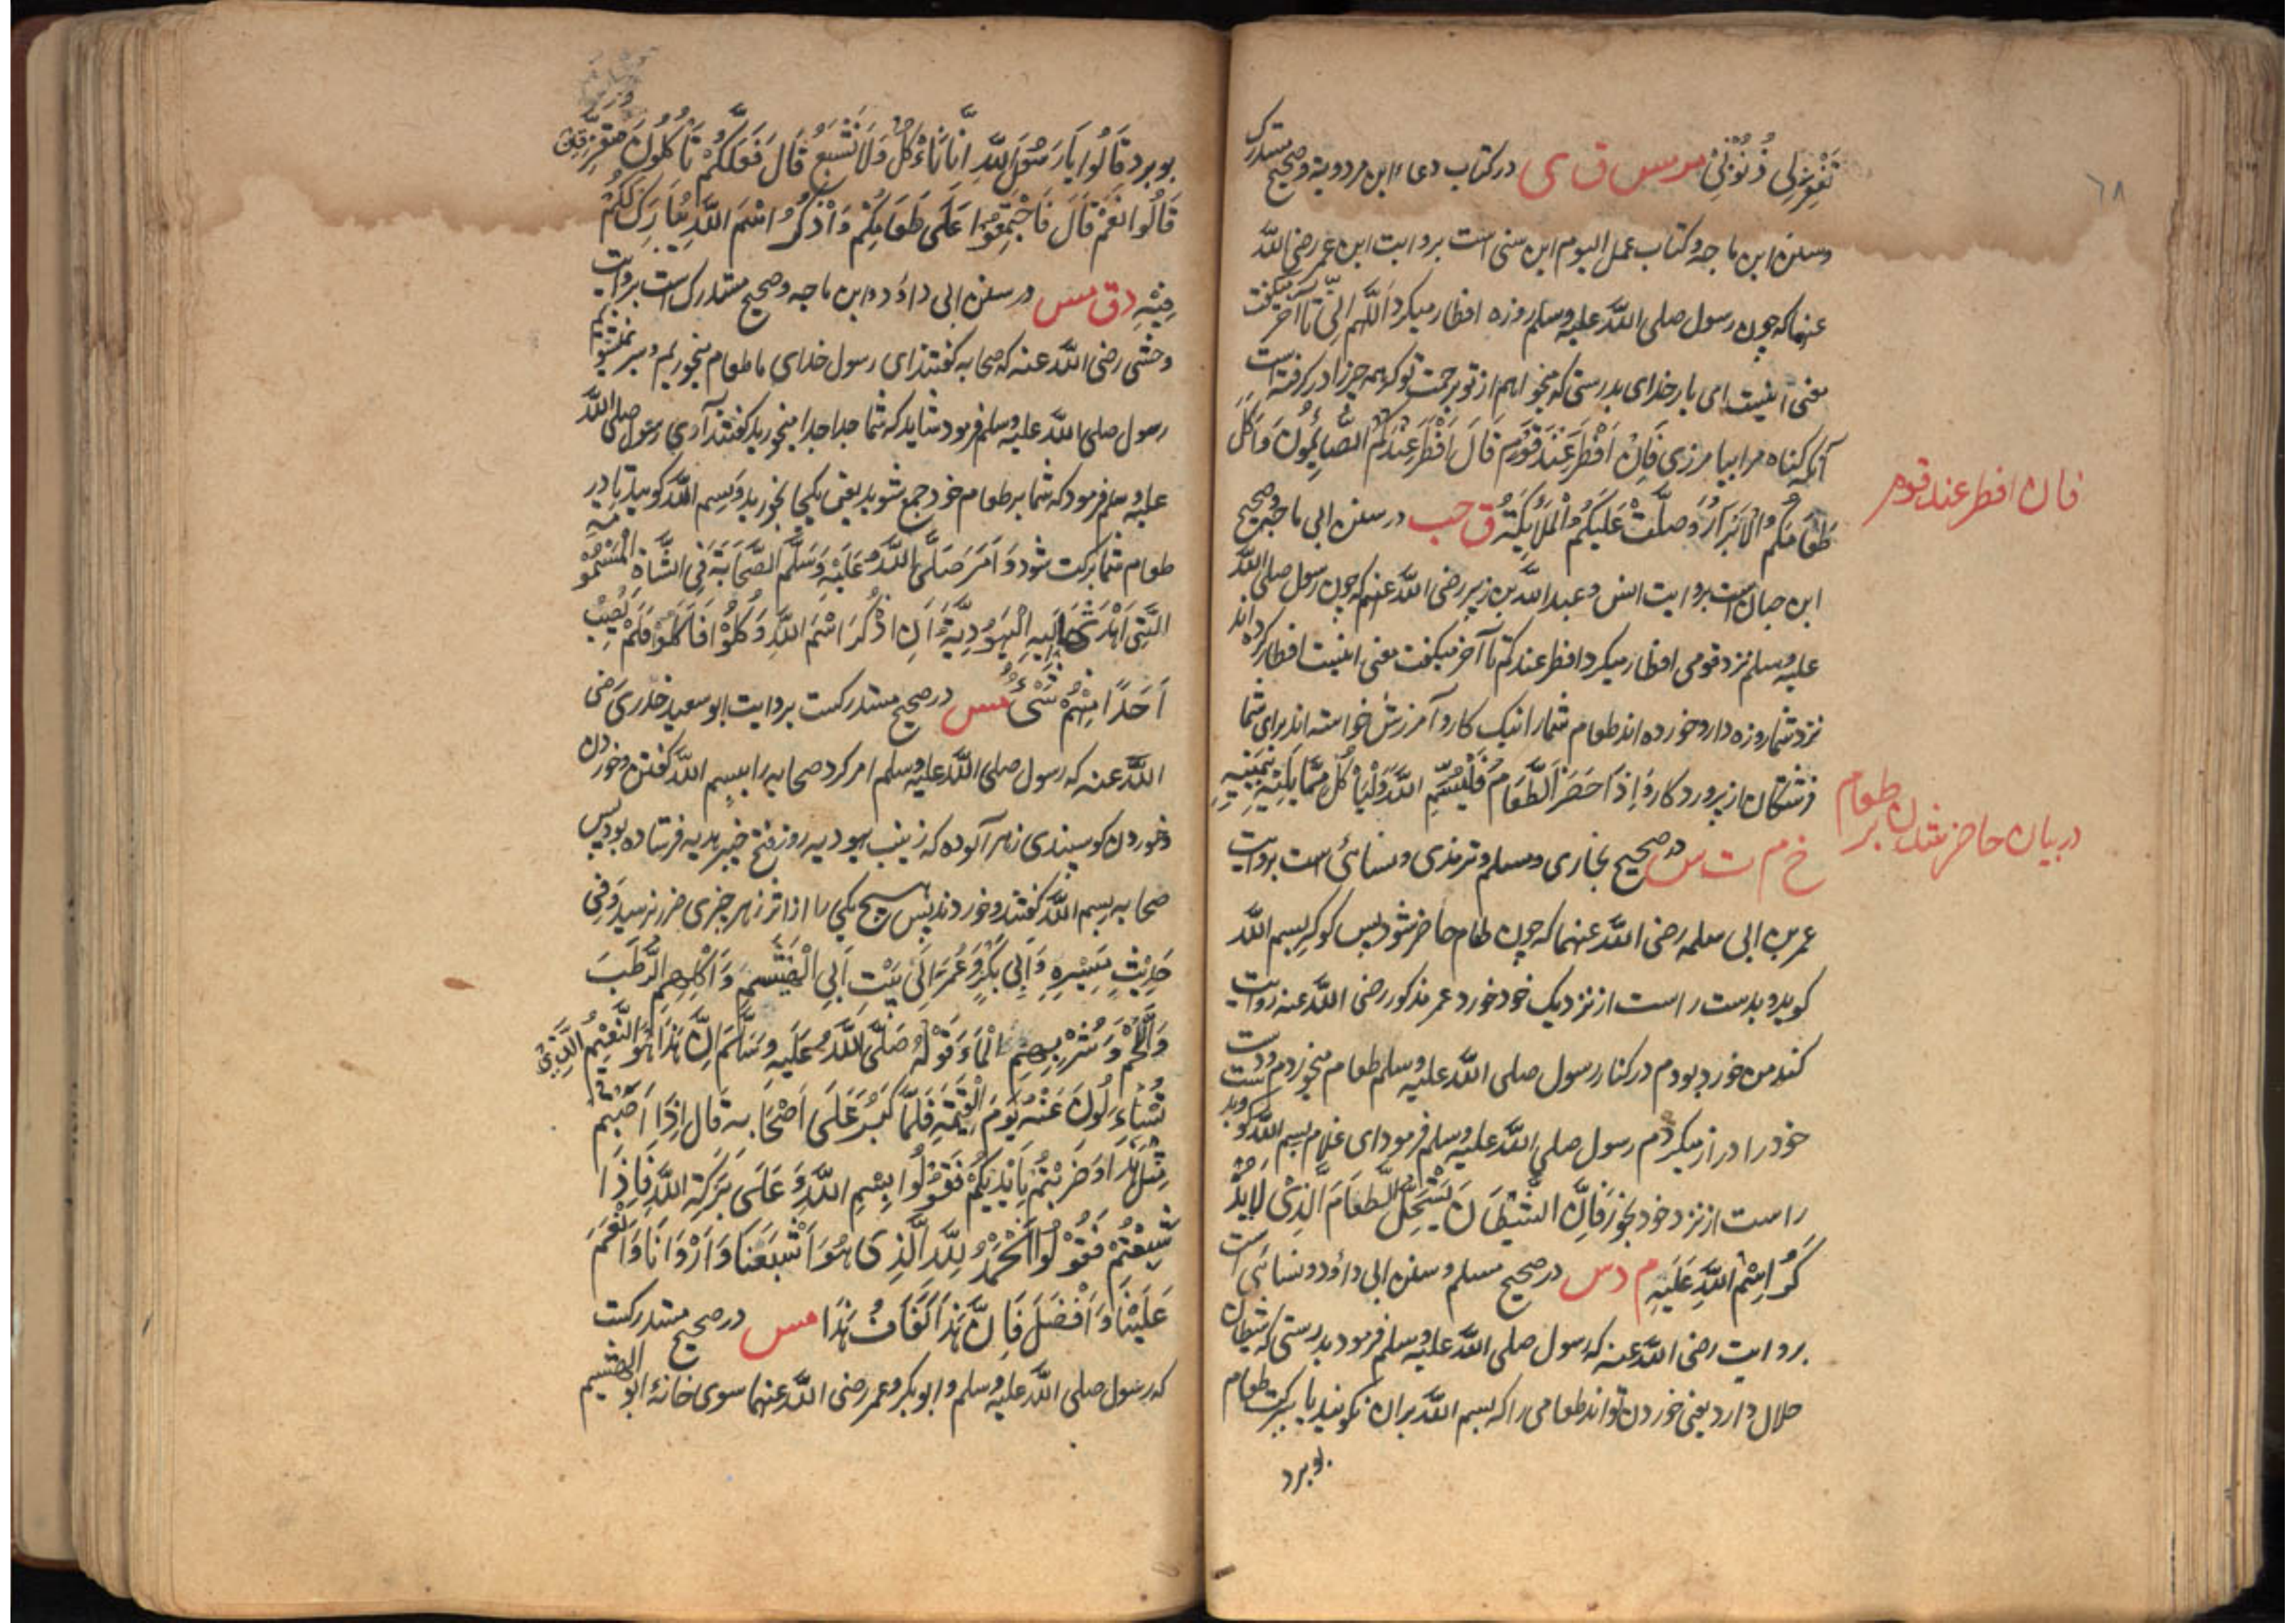 ٦٨
تَغْفِرَ لِی ذُنُوْبِیْ مو مس ق ی در کتاب دعاء ابن مردویة و صحیح مستدرک
و سنن ابن ماجه و کتاب عمل الیوم ابن سنی است بروایت ابن عمر رضی اللّٰه
عنهما که چون رسول صلی اللّٰه علیه وسلم روزه افطار میکرد اللّهم انّی تا آخر میکفت
معنی اینست ای بار خدای بدرستی که میخواهم از تو برحمت تو که همه چیز را در کرفته است
آنکه کناه مرا بیامرزی فَاِنْ اَفْطَرَ عِنْدَ قَوْمٍ قَالَ اَفْطَرَ عِنْدَکُمُ الصَّائِمُوْنَ وَاَکَلَ
فان افطر عند قوم
طَعَامَکُمُ الْاَبْرَارُ وَصَلَّتْ عَلَیْکُمُ الْمَلَائِکَةُ ق حب در سنن ابی ماجه و صحیح
ابن حبان است بروایت انس و عبد اللّٰه بن زبیر رضی اللّٰه عنهم که چون رسول صلی اللّٰه
علیه وسلم نزد قومی افطار میکرد افطر عندکم تا آخر میکفت معنی اینست افطار کرده اند
نزد شما روزه دار و خورده اند طعام شما را نیک کار و آمرزش خواسته اند برای شما
فرشتکان از پروردکار وَاِذَا حَضَرَ الطَّعَامُ فَلْیُسَمِّ اللّٰهَ وَلْیَأْکُلْ مِمَّا یَلِیْهِ بِیَمِیْنِهِ
در بیان حاضر شدن بر طعام
خ م ت س در صحیح بخاری و مسلم و ترمذی و نسائی است بروایت
عمر بن ابی سلمه رضی اللّٰه عنهما که چون طعام حاضر شود پس کو که بسم اللّٰه
کوید و بدست راست از نزدیک خود خورد عمر مذکور رضی اللّٰه عنه روایت
کند من خورد بودم در کنار رسول صلی اللّٰه علیه وسلم طعام میخوردم و دست
خود را دراز میکردم رسول صلی اللّٰه علیه وسلم فرمود ای غلام بسم اللّٰه کو و بدست
راست از نزد خود بخور فَاِنَّ الشَّیْطَانَ یَسْتَحِلُّ الطَّعَامَ الَّذِیْ لَا یُذْ
کَرُ اسْمُ اللّٰهِ عَلَیْهِ م د س در صحیح مسلم و سنن ابی داؤد و نسائی است
بروایت رضی اللّٰه عنه که رسول صلی اللّٰه علیه وسلم فرمود بدرستی که شیطان
حلال دارد یعنی خوردن تواند طعامی را که بسم اللّٰه بران نکویند یا برکت طعام
بوبرد
بوبرد قَالُوا یَا رَسُوْلَ اللّٰهِ اِنَّا نَاءْکُلُ وَلَا نَشْبَعُ قَالَ فَلَعَلَّکُمْ تَأْکُلُوْنَ متفرِّقین
قَالُوا نَعَمْ قَالَ فَاجْتَمِعُوْا عَلَی طَعَامِکُمْ وَاذْکُرُ اسْمَ اللّٰهِ یُبَارِکْ لَکُمْ
فِیْهِ د ق مس در سنن ابی داؤد و ابن ماجه و صحیح مستدرک است بروایت
وحشی رضی اللّٰه عنه که صحابه کفتند ای رسول خدای ما طعام میخوریم و سیر نمیشویم
رسول صلی اللّٰه علیه وسلم فرمود شاید که شما جدا جدا میخورید کفتند آری رسول صلی اللّٰه
علیه وسلم فرمود که شما بر طعام خود جمع شوید یعنی یکجا بخورید و بسم اللّٰه کویید تا در
طعام شما برکت شود وَاَمَرَ صَلَّی اللّٰهُ عَلَیْهِ وَسَلَّمَ الصَّحَابَةَ فِی الشَّاةِ الْمَسْمُوْمَةِ
الَّتِیْ اَهْدَتْهَا اِلَیْهِ الْیَهُوْدِیَّةُ اَنِ اذْکُرَ اسْمَ اللّٰهِ وَکُلُوْا فَاَکَلُوْا فَلَمْ یُصِبْ
اَحَدًا مِنْهُمْ شَیْءٌ مس در صحیح مستدرکست بروایت ابو سعید خدری رضی
اللّٰه عنه که رسول صلی اللّٰه علیه وسلم امر کرد صحابه را ببسم اللّٰه کفتن و خوردن
و خوردن کوسپندی زهر آلوده که زینب یهودیه روز فتح خیبر هدیه فرستاده بود پس
صحابه بسم اللّٰه کفتند و خوردند پس هیچ یکی را از اثر زهر چیزی ضرر نرسید وَفِی
حَدِیْثِ مَسِیْرِهِ وَاَبِی بَکْرٍ وَعُمَرَ اِلَی بَیْتِ اَبِی الْهَیْثَمِ وَاَکْلِهِمِ الرُّطَبَ
وَاللَّحْمَ وَشُرْبِهِمِ الْمَاءَ وَقَوْلُهُ صَلَّی اللّٰهُ عَلَیْهِ وَسَلَّمَ اِنَّ هَذَا هُوَ النَّعِیْمُ الَّذِیْ
تُسْاَءَلُوْنَ عَنْهُ یَوْمَ الْقِیٰمَةِ فَلَمَّا کَبُرَ عَلَی اَصْحَابِهِ قَالَ اِذَا اَصَبْتُمْ
مِثْلَ هَذَا وَضَرَبْتُمْ بِاَیْدِیْکُمْ فَقُوْلُوا بِسْمِ اللّٰهِ وَعَلَی بَرَکَةِ اللّٰهِ فَاِذَا
شَبِعْتُمْ فَقُوْلُوا الْحَمْدُ لِلّٰهِ الَّذِی هُوَ اَشْبَعَنَا وَاَرْوَانَا وَاَنْعَمَ
عَلَیْنَا وَاَفْضَلَ فَاِنَّ هَذَا کَفَافُ هَذَا مس در صحیح مستدرکست
که رسول صلی اللّٰه علیه وسلم و ابوبکر و عمر رضی اللّٰه عنهما سوی خانهٔ ابو الهیثم